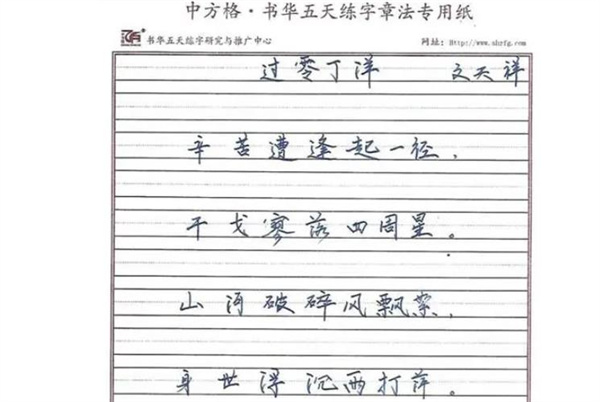 中方格·书华五天练字章法专用纸
书华五天练字研究与推广中心 网址：Http://www.shrfg.com
过零丁洋 文天祥
辛苦遭逢起一径，
干戈寥落四周星。
山河破碎风飘絮，
身世浮沉雨打萍。